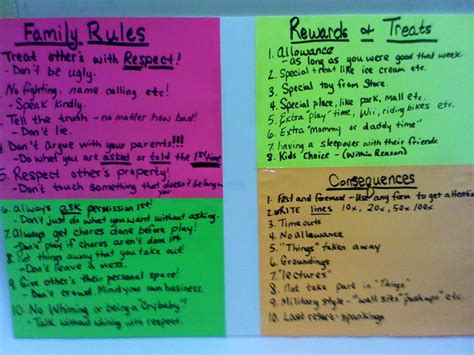 Family Rules
Treat other's with Respect!
- Don't be ugly.
No fighting, name calling etc!
- Speak kindly.
Tell the truth - no matter how bad!
- Don't lie.
Don't Argue with your parents!!!
- Do what you are asked or told the 1st time
5. Respect other's property!
- Don't touch something that doesn't belong
6. Always ask permission 1st!
- Don't just do what you want without asking.
Always get chores done before play!
- Don't play if chores aren't done 1st
Put things away that you take out!
- Don't leave a mess.
9. Give other's their personal space!
- Don't crowd. Mind your own business.
10. No Whining or being a "Crybaby"!
- Talk without whining with respect.
Rewards or Treats
1. Allowance
- as long as you were good that week.
2. Special treat like ice cream etc.
3. Special toy from Store.
4. Special place, like park, mall etc.
5. Extra "play" time, Wii, riding bikes etc.
6. Extra "mommy or daddy time"
7. having a sleepover with their friends.
8. Kids' Choice - (Within Reason)
Consequences
1. First and foremost - Use any form to get
2. WRITE lines 10x, 20x, 50x 100x
3. Timeouts
4. No allowance
5. "Things" taken away
6. Groundings
7. "lectures"
8. Not take part in "Things"
9. Military style - "wall sits" pushups" etc.
10. Last resort - spankings